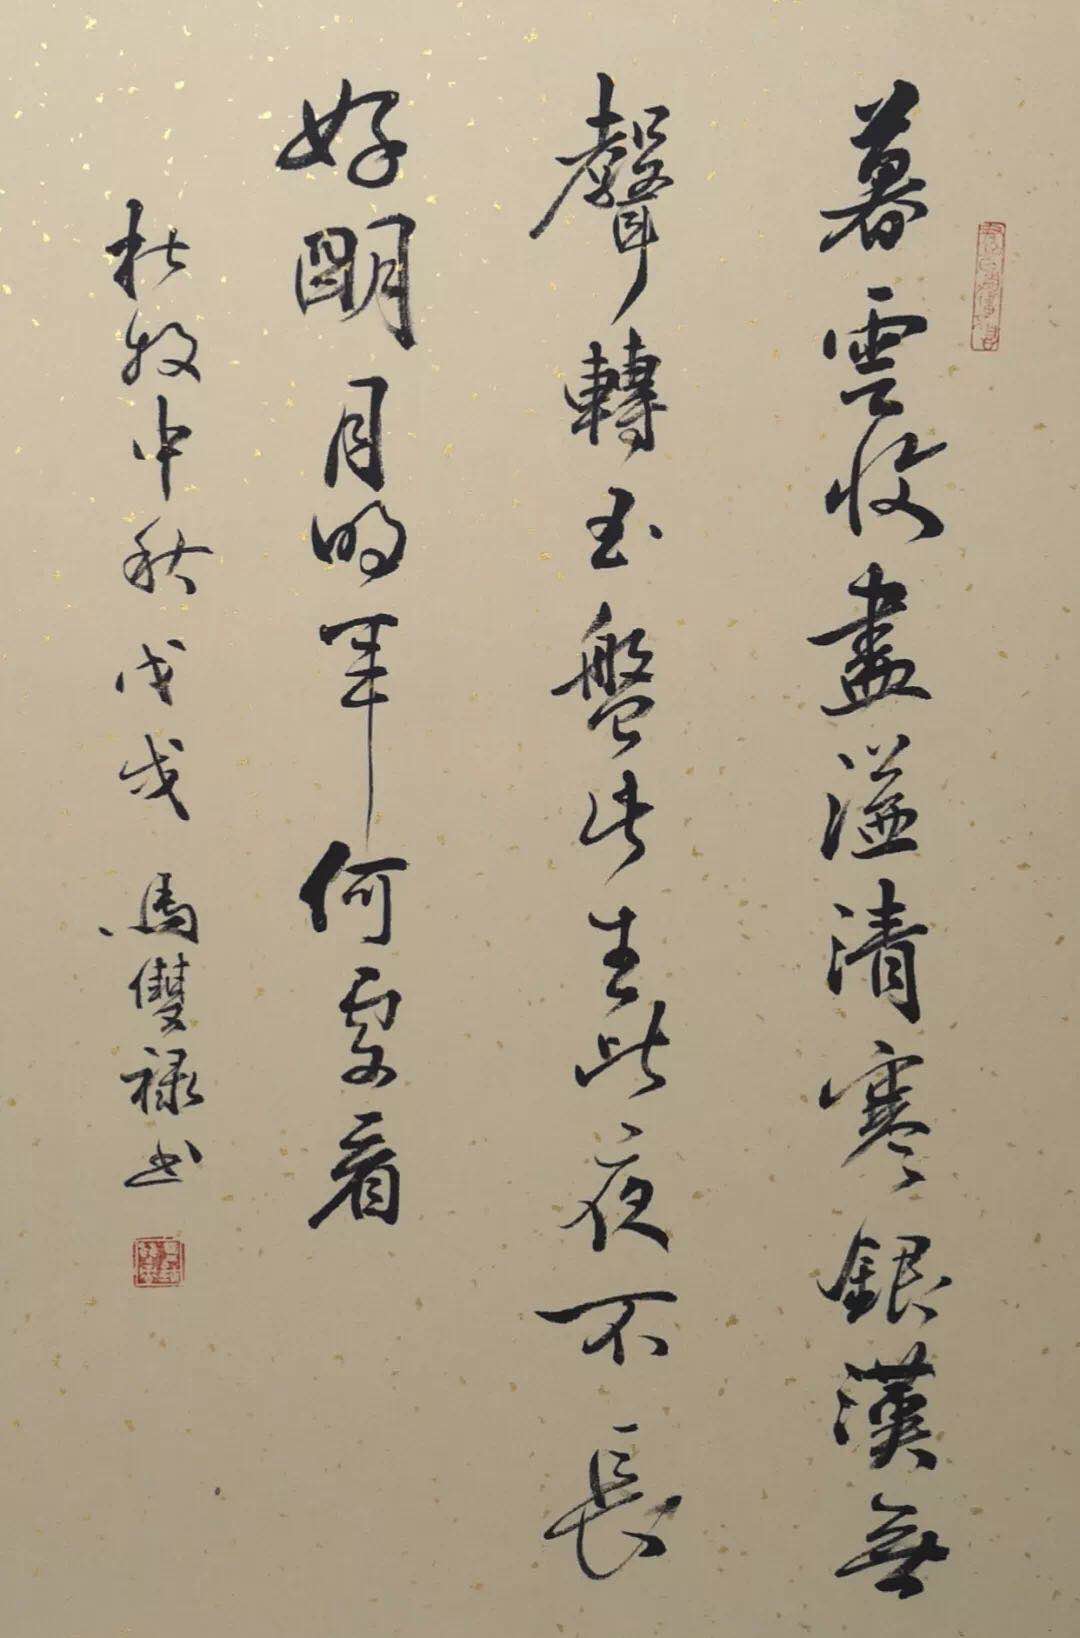 暮雲收盡溢清寒銀漢無
聲轉玉盤此生此夜不長
好明月明年何處看
杜牧中秋戊戌馬雙祿书